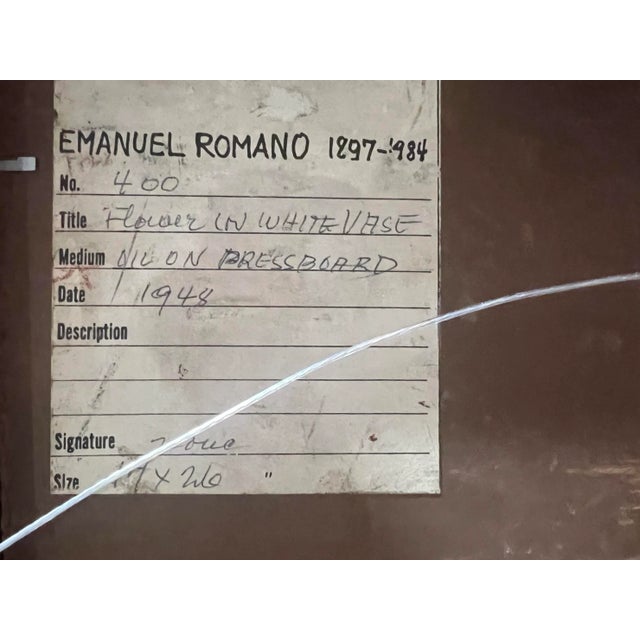 EMANUEL ROMANO 1897-1984
No. 400
Title Flower IN WHITE VASE
Medium OIL ON PRESSBOARD
Date 1948
Description
Signature none
Size 17 x 26 "